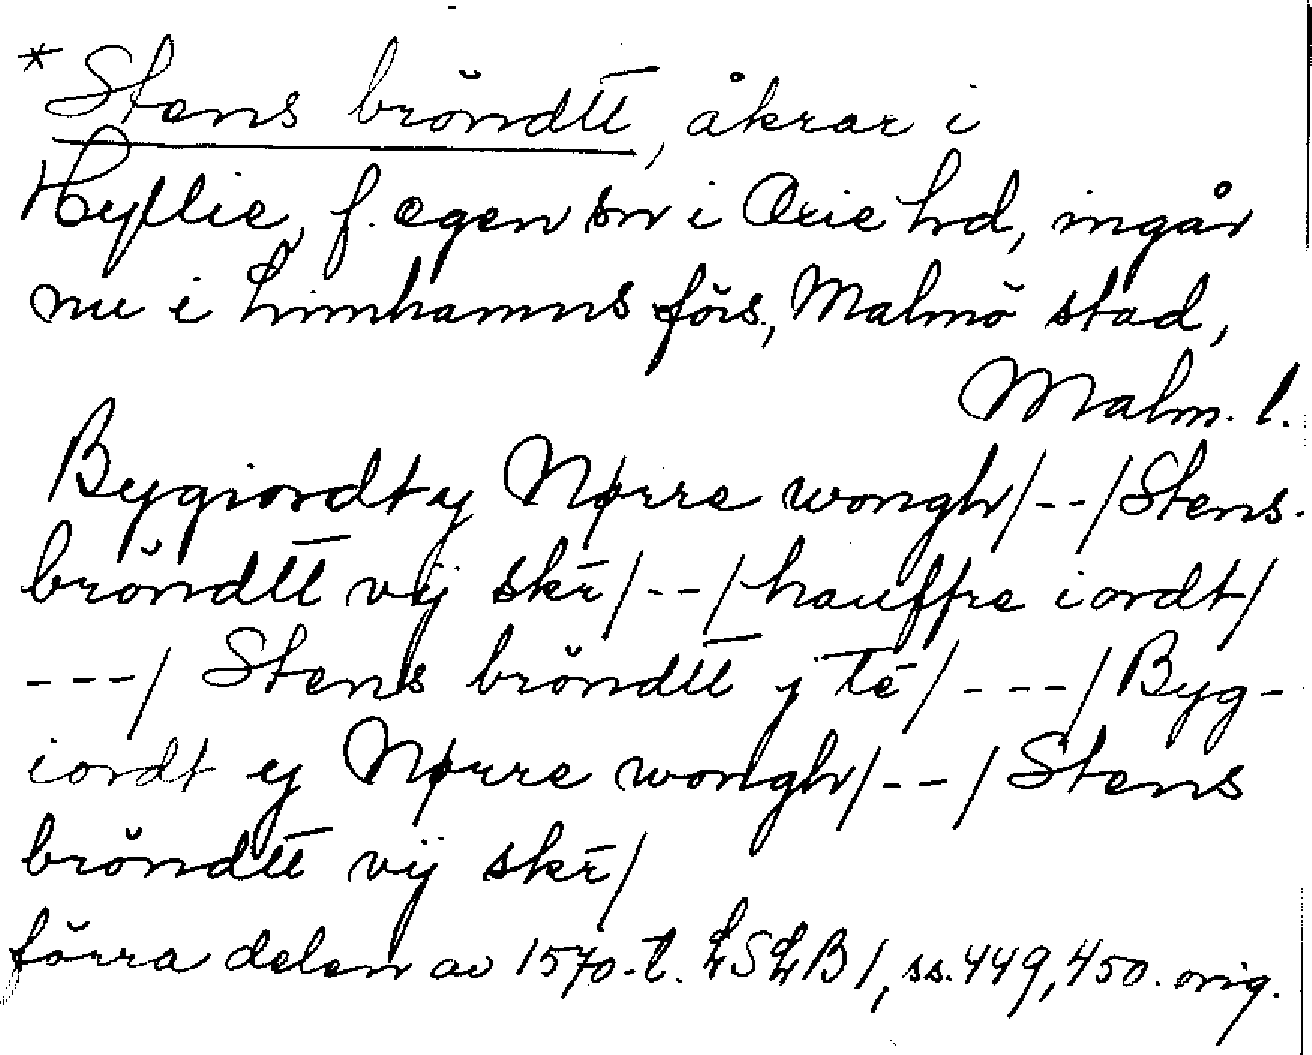 * Stens bröndtt̅, åkrar i
Hyllie, f. egen sn i Oxie hd, ingår
nu i Limhamns förs., Malmö stad,
Malm. l.
Bygiordt y Nørre wongh/--/Stens-
bröndtt̅ vij skr̅/--/hauffre iordt/
---/ Stens bröndtt̅ j te̅/---/Byg-
iordt y Nørre wongh/--/Stens
bröndtt̅ vij skr̅/
förra delen av 1570-t. LSLB 1, ss. 449, 450. orig.